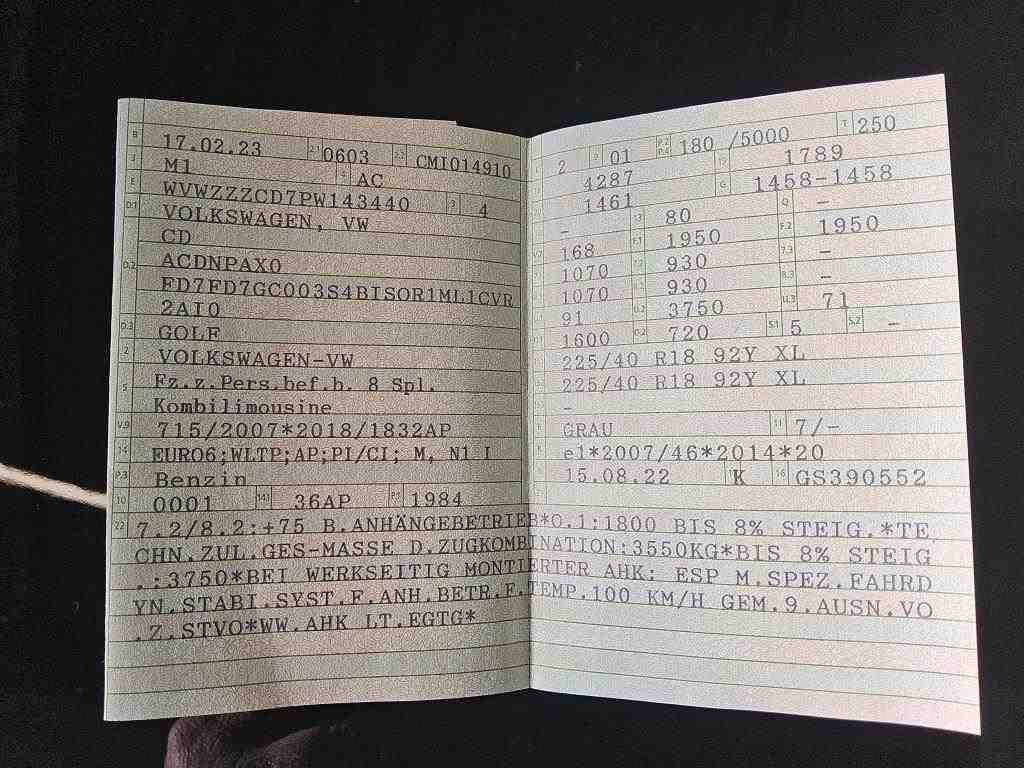 B 17.02.23 2.1 0603 2.2 CMI014910
J M1 AC
E WVWZZZCD7PW143440 3 4
D.1 VOLKSWAGEN, VW
CD
D.2 ACDNPAX0
FD7FD7GC003S4BISOR1ML1CVR
2AI0
D.3 GOLF
2 VOLKSWAGEN-VW
5 Fz.z.Pers.bef.b. 8 Spl.
Kombilimousine
V.9 715/2007*2018/1832AP
14 EURO6;WLTP;AP;PI/CI; M, N1 I
P.3 Benzin
10 0001 14.1 36AP P.1 1984
22 7.2/8.2:+75 B.ANHÄNGEBETRIEB*O.1:1800 BIS 8% STEIG.*TE
CHN.ZUL.GES-MASSE D.ZUGKOMBINATION:3550KG*BIS 8% STEIG
.:3750*BEI WERKSEITIG MONTIERTER AHK: ESP M.SPEZ.FAHRD
YN.STABI.SYST.F.ANH.BETR.F.TEMP.100 KM/H GEM.9.AUSN.VO
.Z.STVO*WW.AHK LT.EGTG*
2 9 01 P.2 P.4 180 /5000 T 250
4287 1789
1461 G 1458-1458
- 80 Q -
168 F.1 1950 F.2 1950
1070 930 7.3 -
1070 930 8.3 -
91 U.2 3750 U.3 71
1600 O.2 720 S.1 5 S.2 -
225/40 R18 92Y XL
225/40 R18 92Y XL
-
GRAU 11 7/-
e1*2007/46*2014*20
15.08.22 K 16 GS390552